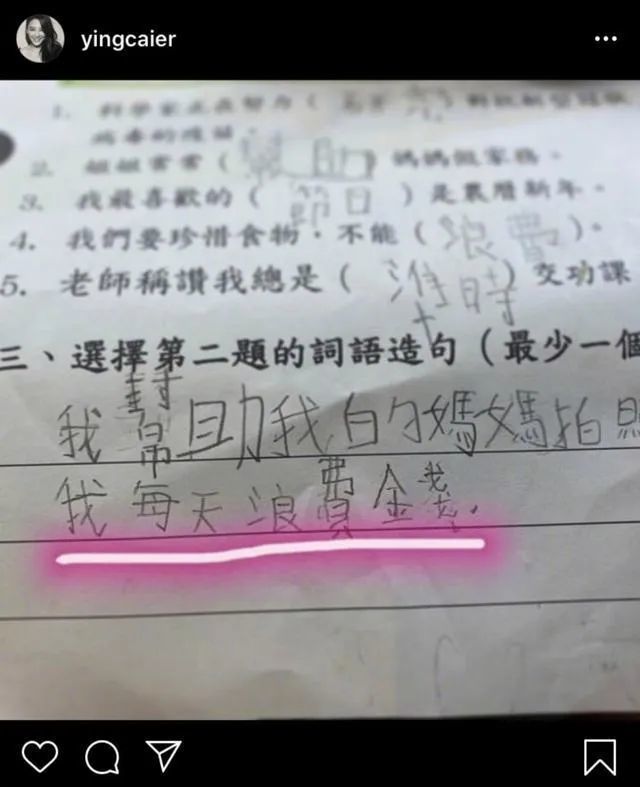 yingcaier
1. 科學家正在努力（
2. 姐姐常常（幫助）媽媽做家務。
3. 我最喜歡的（節日）是農曆新年。
4. 我們要珍惜食物，不能（浪費）。
5. 老師稱讚我總是（準時）交功課
三、選擇第二題的詞語造句（最少一個
我幫助我的媽媽拍照
我每天浪費金錢。